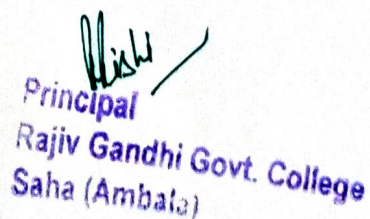 Principal
Rajiv Gandhi Govt. College
Saha (Ambala)